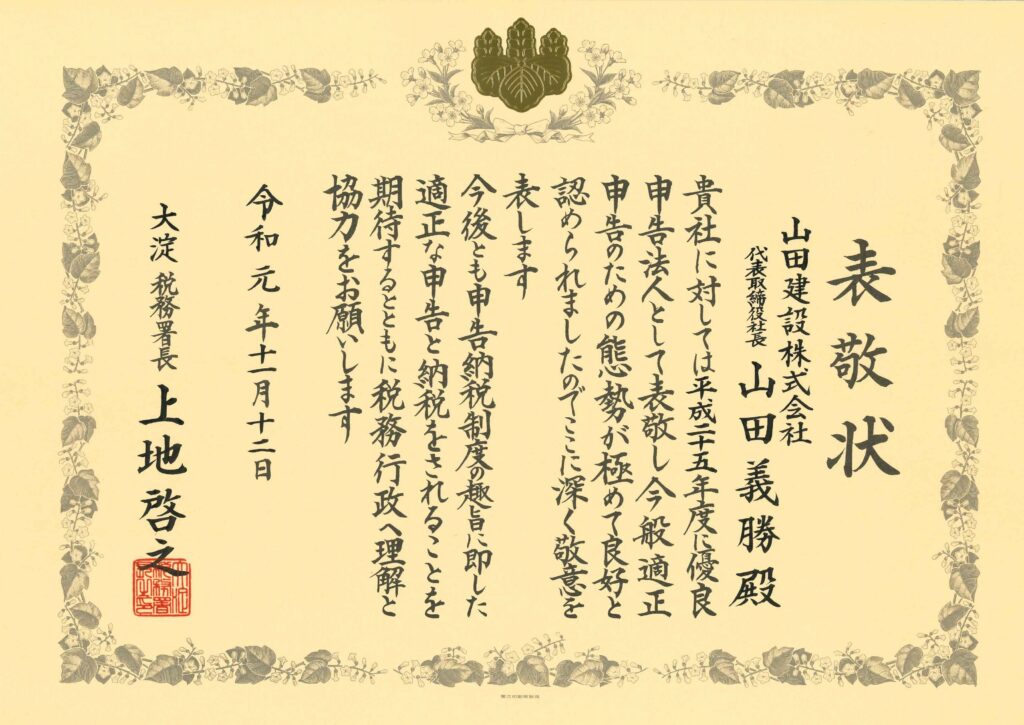 表敬状
山田建設株式会社
代表取締役社長 山田義勝殿
貴社に対しては平成二十五年度に優良
申告法人として表敬し今般適正
申告のための態勢が極めて良好と
認められましたのでここに深く敬意を
表します
今後とも申告納税制度の趣旨に即した
適正な申告と納税をされることを
期待するとともに税務行政へ理解と
協力をお願いします
令和元年十一月十二日
大淀税務署長 上地啓之